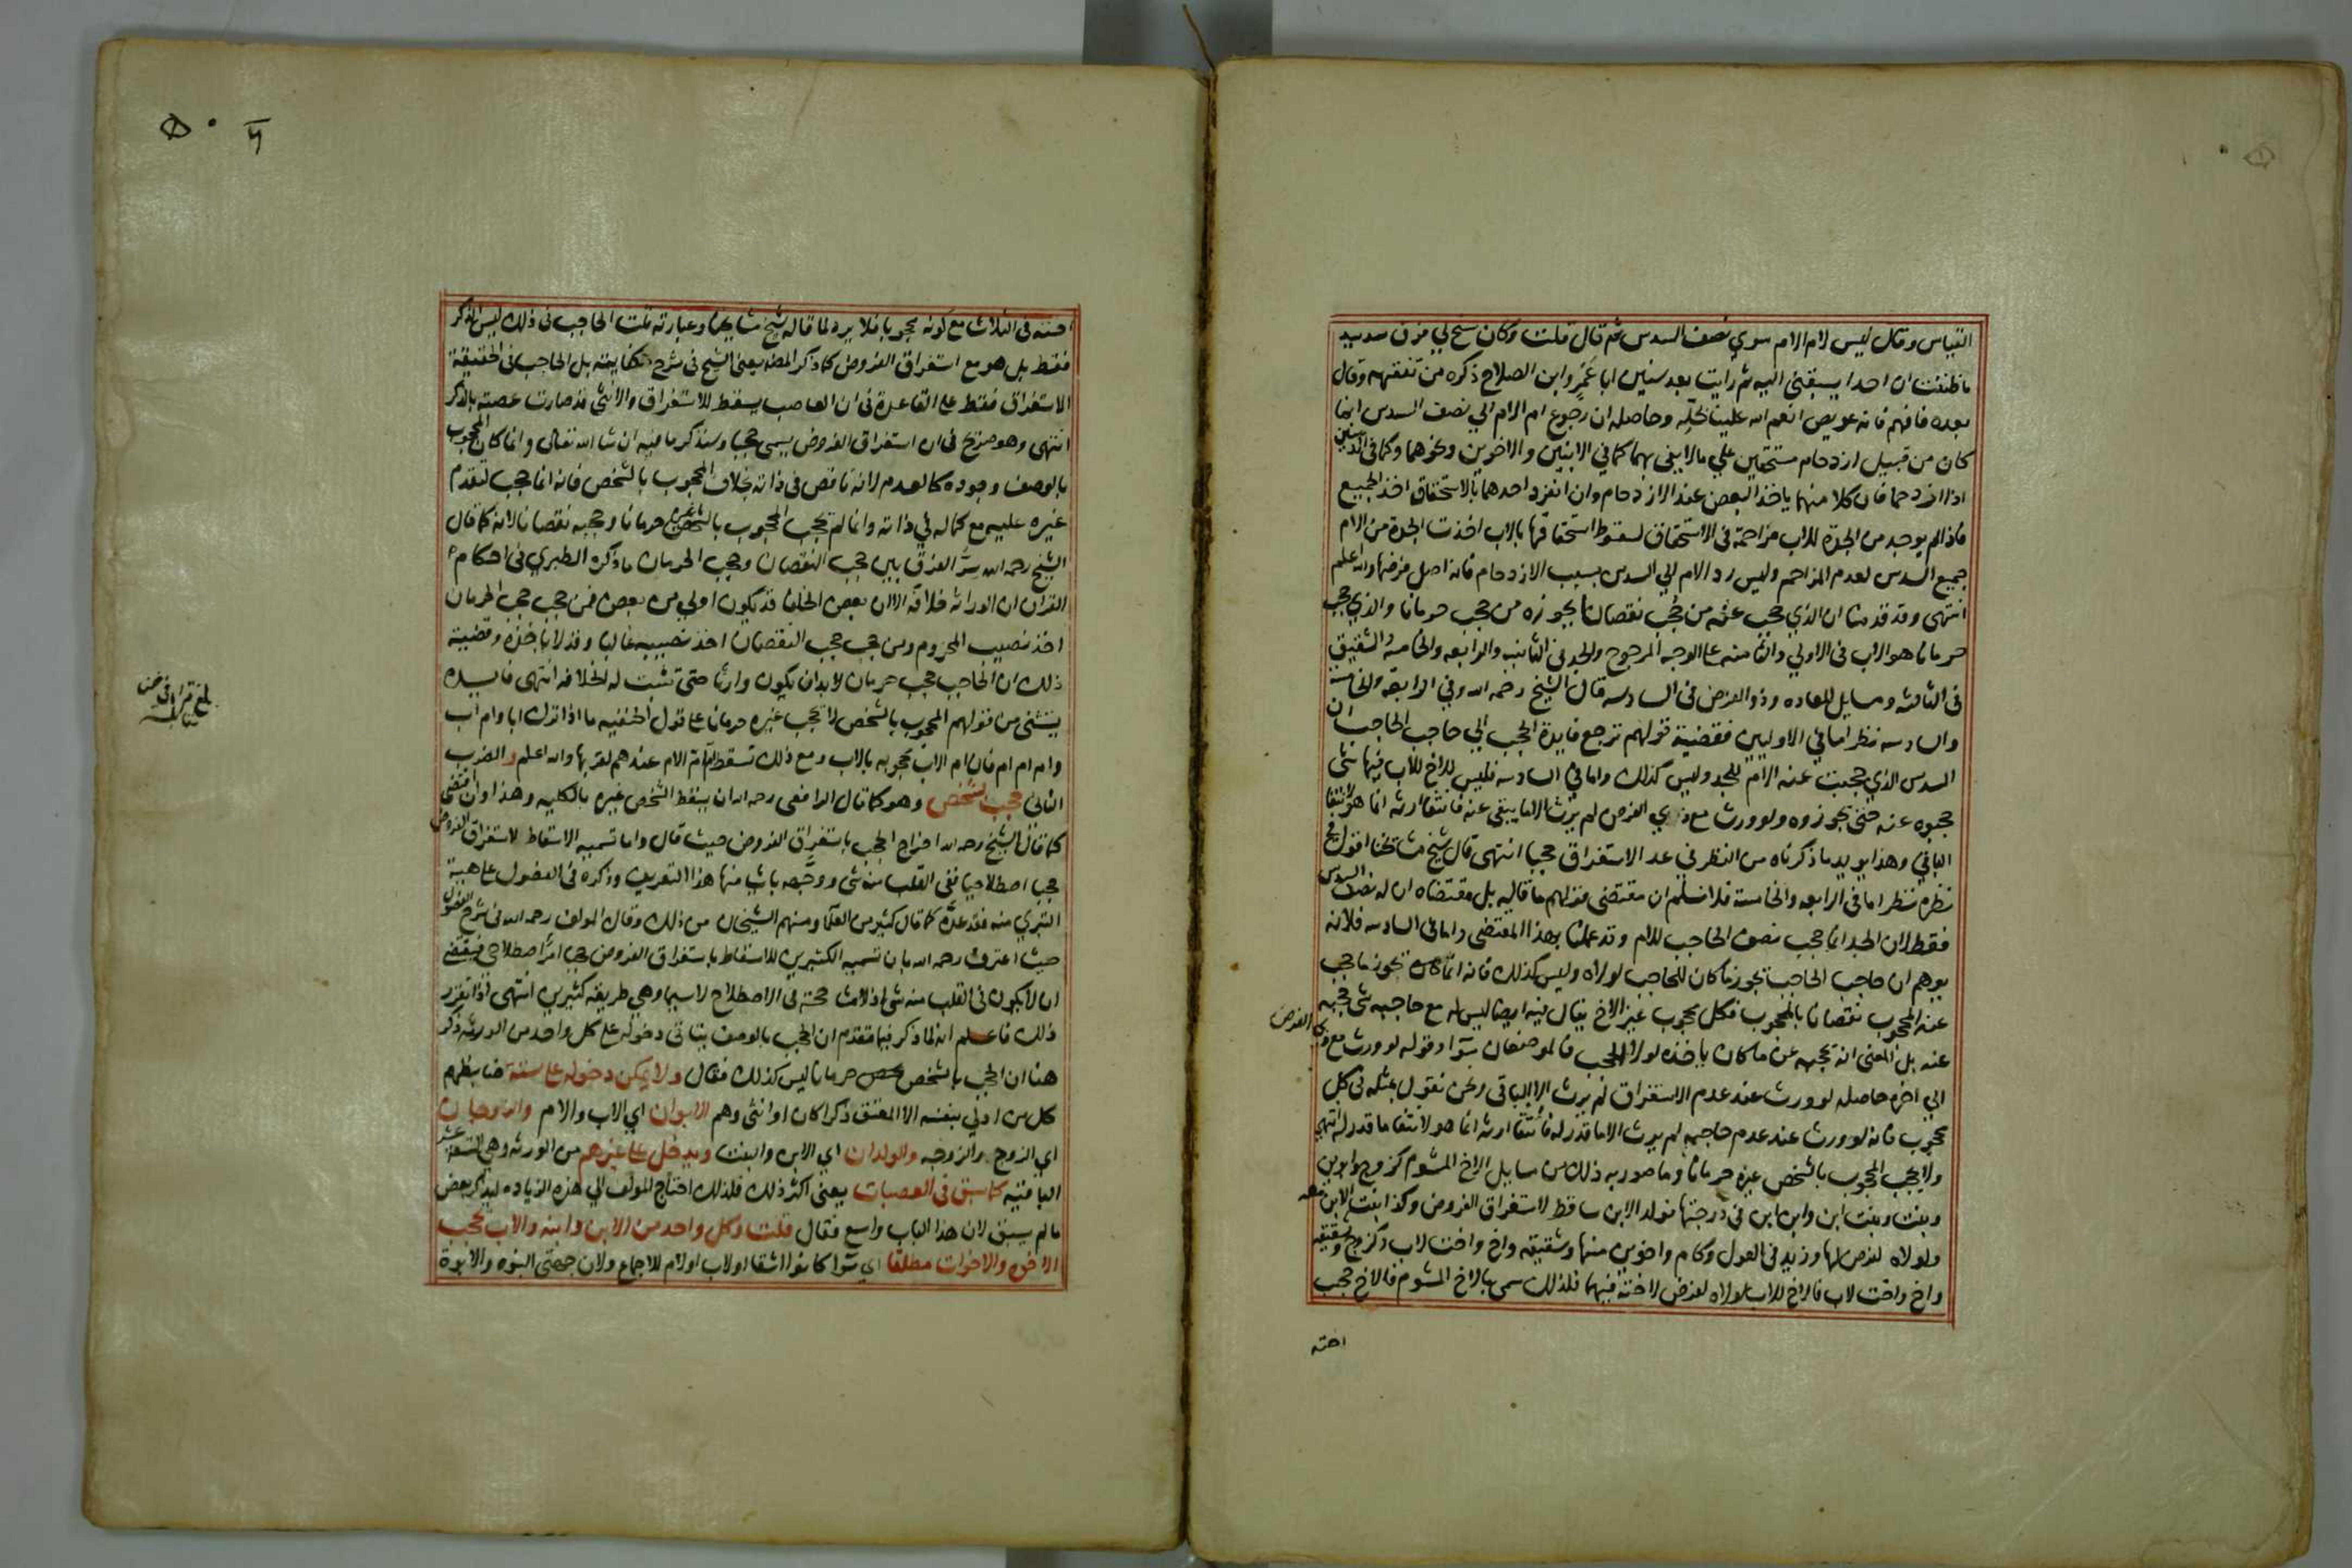 القياس وقال ليس لام الام سوي نصف السدس ثم قال قلت وكان سنح لي فرق سديد
ما ظننت ان احدا يسبقني اليه ثم رايت بعد سنين ابا عمرو ابن الصلاح ذكره من تفقهه وقال
بعده فافهم فانه عويص انعم الله علينا بحله وحاصله ان رجوع ام الام الي نصف السدس انما
كان من قبيل ازدحام مستحقين علي مالا يفي بهما كما في الابنين والاخوين ونحوهما وكما في الدينين
اذا ازدحما فان كلا منهما ياخذ البعض عند الازدحام وان انفرد احدهما بالاستحقاق اخذ الجميع
فاذا لم يوجد من الجدة للاب مزاحمة في الاستحقاق لسقوط استحقاقها بالاب اخذت الجدة من الام
جميع السدس لعدم المزاحم وليس رد الام الي السدس بسبب الازدحام فانه اصل فرضها والله اعلم
انتهى وقد قدمنا ان الذي حجب عنه من حجب نقصانا يحوزه من حجب حرمانا والذي حجب
حرمانا هو الاب في الاولي والثامنه على الوجه المرجوح والجد في الثانيه والرابعه والخامسه والشقيق
في الثالثه ومسايل المعاده وذو الفرض في السادسه قال الشيخ رحمه الله وفي الرابعة والخامسة
والسادسه نظر اما في الاوليين فقضية قولهم ترجع فايدة الحجب الي حاجب الحاجب ان
السدس الذي حجبت عنه الام للجد وليس كذلك واما في السادسه فليس للاخ للاب فيها شي
حجبوه عنه حتى يحوزوه ولو ورث مع ذي الفرض لم يرث الا ما يبقى عنه فانتفا ارثه انما هو لانتفا
الباقي وهذا يويد ما ذكرناه من النظر في عد الاستغراق حجبا انتهى قال شيخ مشايخنا اقول في
نظره نظر اما في الرابعه والخامسة فلا نسلم ان مقتضى قولهم ما قاله بل مقتضاه ان له نصف السدس
فقط لان الجد انما حجب نصف الحاجب للام وقد عملنا بهذا المقتضى واما في السادسه فلانه
يوهم ان حاجب الحاجب يحوز ما كان للحاجب لولاه وليس كذلك فانه انما يحوز ما حجب
عنه المحجوب نقصانا بالمحجوب فكل محجوب غير الاخ يقال فيه ايضا ليس له مع حاجبه شي حجبه
عنه بل المعنى انه حجبه عن ما كان ياخذه لولا الحجب فالموضعان سوا وقوله لو ورث مع ذي الفرض
الي اخره حاصله لو ورث عند عدم الاستغراق لم يرث الا الباقي ونحن نقول بمثله في كل
محجوب فانه لو ورث عند عدم حاجبه لم يرث الا ما قدر له فانتفا ارثه انما هو لانتفا ما قدر له انتهى
ولا يحجب المحجوب بالشخص غيره حرمانا وما صور به ذلك من مسايل الاخ المشوم كزوج وابوين
وبنت وبنت ابن وابن ابن في درجتها فولد الابن ساقط لاستغراق الفروض وكذا بنت الابن معه
ولولاه لفرض لها وزيد في العول وكام واخوين منها وشقيقه واخ واخت لاب وكزوج وشقيقه
واخ واخت لاب فالاخ للاب لولاه لفرض لاخته فيهما فلذلك سمى بالاخ المشوم فالاخ حجب
اخته
اخته في الثلاث مع كونه محجوبا فلا يرد لما قاله شيخ مشايخنا وعبارته قلت الحاجب في ذلك ليس الذكر
فقط بل هو مع استغراق الفروض كما ذكر المصنف يعني الشيخ في شرح كفايته بل الحاجب في الحقيقة
الاستغراق فقط على القاعدة في ان العاصب يسقط للاستغراق والانثى قد صارت عصبته بالذكر
انتهى وهو صريح في ان استغراق الفروض يسمى حجبا وسنذكر ما فيه ان شا الله تعالى وانما كان المحجوب
بالوصف وجوده كالعدم لانه ناقص في ذاته بخلاف المحجوب بالشخص فانه انما حجب لتقدم
غيره عليه مع كماله في ذاته وانما لم يحجب المحجوب بالشخص غيره حرمانا وحجبه نقصانا لانه كما قال
الشيخ رحمه الله سر الفرق بين حجب النقصان وحجب الحرمان ما ذكره الطبري في احكام
القران ان الوراثه خلافة الا ان بعض الخلفا قد يكون اولي من بعض فمن حجب حجب الحرمان
اخذ نصيب المحروم ومن حجب حجب النقصان اخذ نصيبه غالبا وقد لا ياخذه وقضية
ذلك ان الحاجب حجب حرمان لابد ان يكون وارثا حتى تثبت له الخلافه انتهى فايدة
يستثنى من قولهم المحجوب بالشخص لا يحجب غيره حرمانا على قول الحنفيه ما اذا ترك ابا وام اب
وام ام ام فان ام الاب محجوبه بالاب ومع ذلك تسقط ام ام الام عندهم لقربها والله اعلم والضرب
الثاني حجب شخص وهو كما قال الرافعي رحمه الله ان يسقط الشخص غيره بالكليه وهذا وان اقتضى
كما قال الشيخ رحمه الله اخراج الحجب باستغراق الفروض حيث قال واما تسميه الاسقاط لاستغراق الفروض
حجبا اصطلاحيا ففي القلب منه شي ووجهه باثبا منها هذا التعريف وذكره في الفصول على هيئة
التبري منه فقد عده كما قال كثير من العلما ومنهم الشيخان من ذلك وقال المولف رحمه الله في شرح الفصول
حيث اعترف رحمه الله بان تسميه الكثيرين للاسقاط باستغراق الفروض حجبا امرا اصطلاحي فيقتضى
ان لا يكون في القلب منه شي اذ لا مشاحة في الاصطلاح لا سيما وهي طريقه كثيرين انتهى اذا تقرر
ذلك فاعلم انه لما ذكر فيما تقدم ان الحجب بالوصف يتاتى دخوله على كل واحد من الورثه ذكر
هنا ان الحجب بالشخص حرمانا ليس كذلك فقال ولا يمكن دخوله على ستة ضابطهم
كل من ادلي بنفسه الا المعتق ذكرا كان او انثى وهم الابوان اي الاب والام والزوجان
اي الزوج والزوجه والولدان اي الابن والبنت ويدخل على غيرهم من الورثه وهي التسعة عشر
الباقيه كما سبق في العصبات يعني اكثر ذلك فلذلك احتاج المولف الي هذه الزياده ليذكر بعض
ما لم يسبق لان هذا الباب واسع فقال قلت وكل واحد من الابن وابنه والاب يحجب
الاخوه والاخوات مطلقا اي سوا كانوا اشقا او لاب او لام للاجماع ولان جهتى البنوه والابوة
بلغ